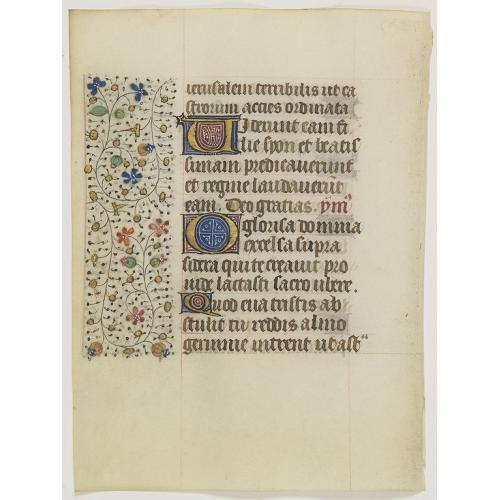 iherusalem terribilis ut ca
strorum acies ordinata
Viderunt eam fi
lie syon et beatis
simam predicaverunt
et regine laudaverūt
eam. Deo gratias. ym̄
O gloriosa domina
excelsa supra
sidera qui te creavit pro
vide lactasti sacro ubere.
Quod eua tristis ab
stulit tu reddis almo
germine intrent ut ast